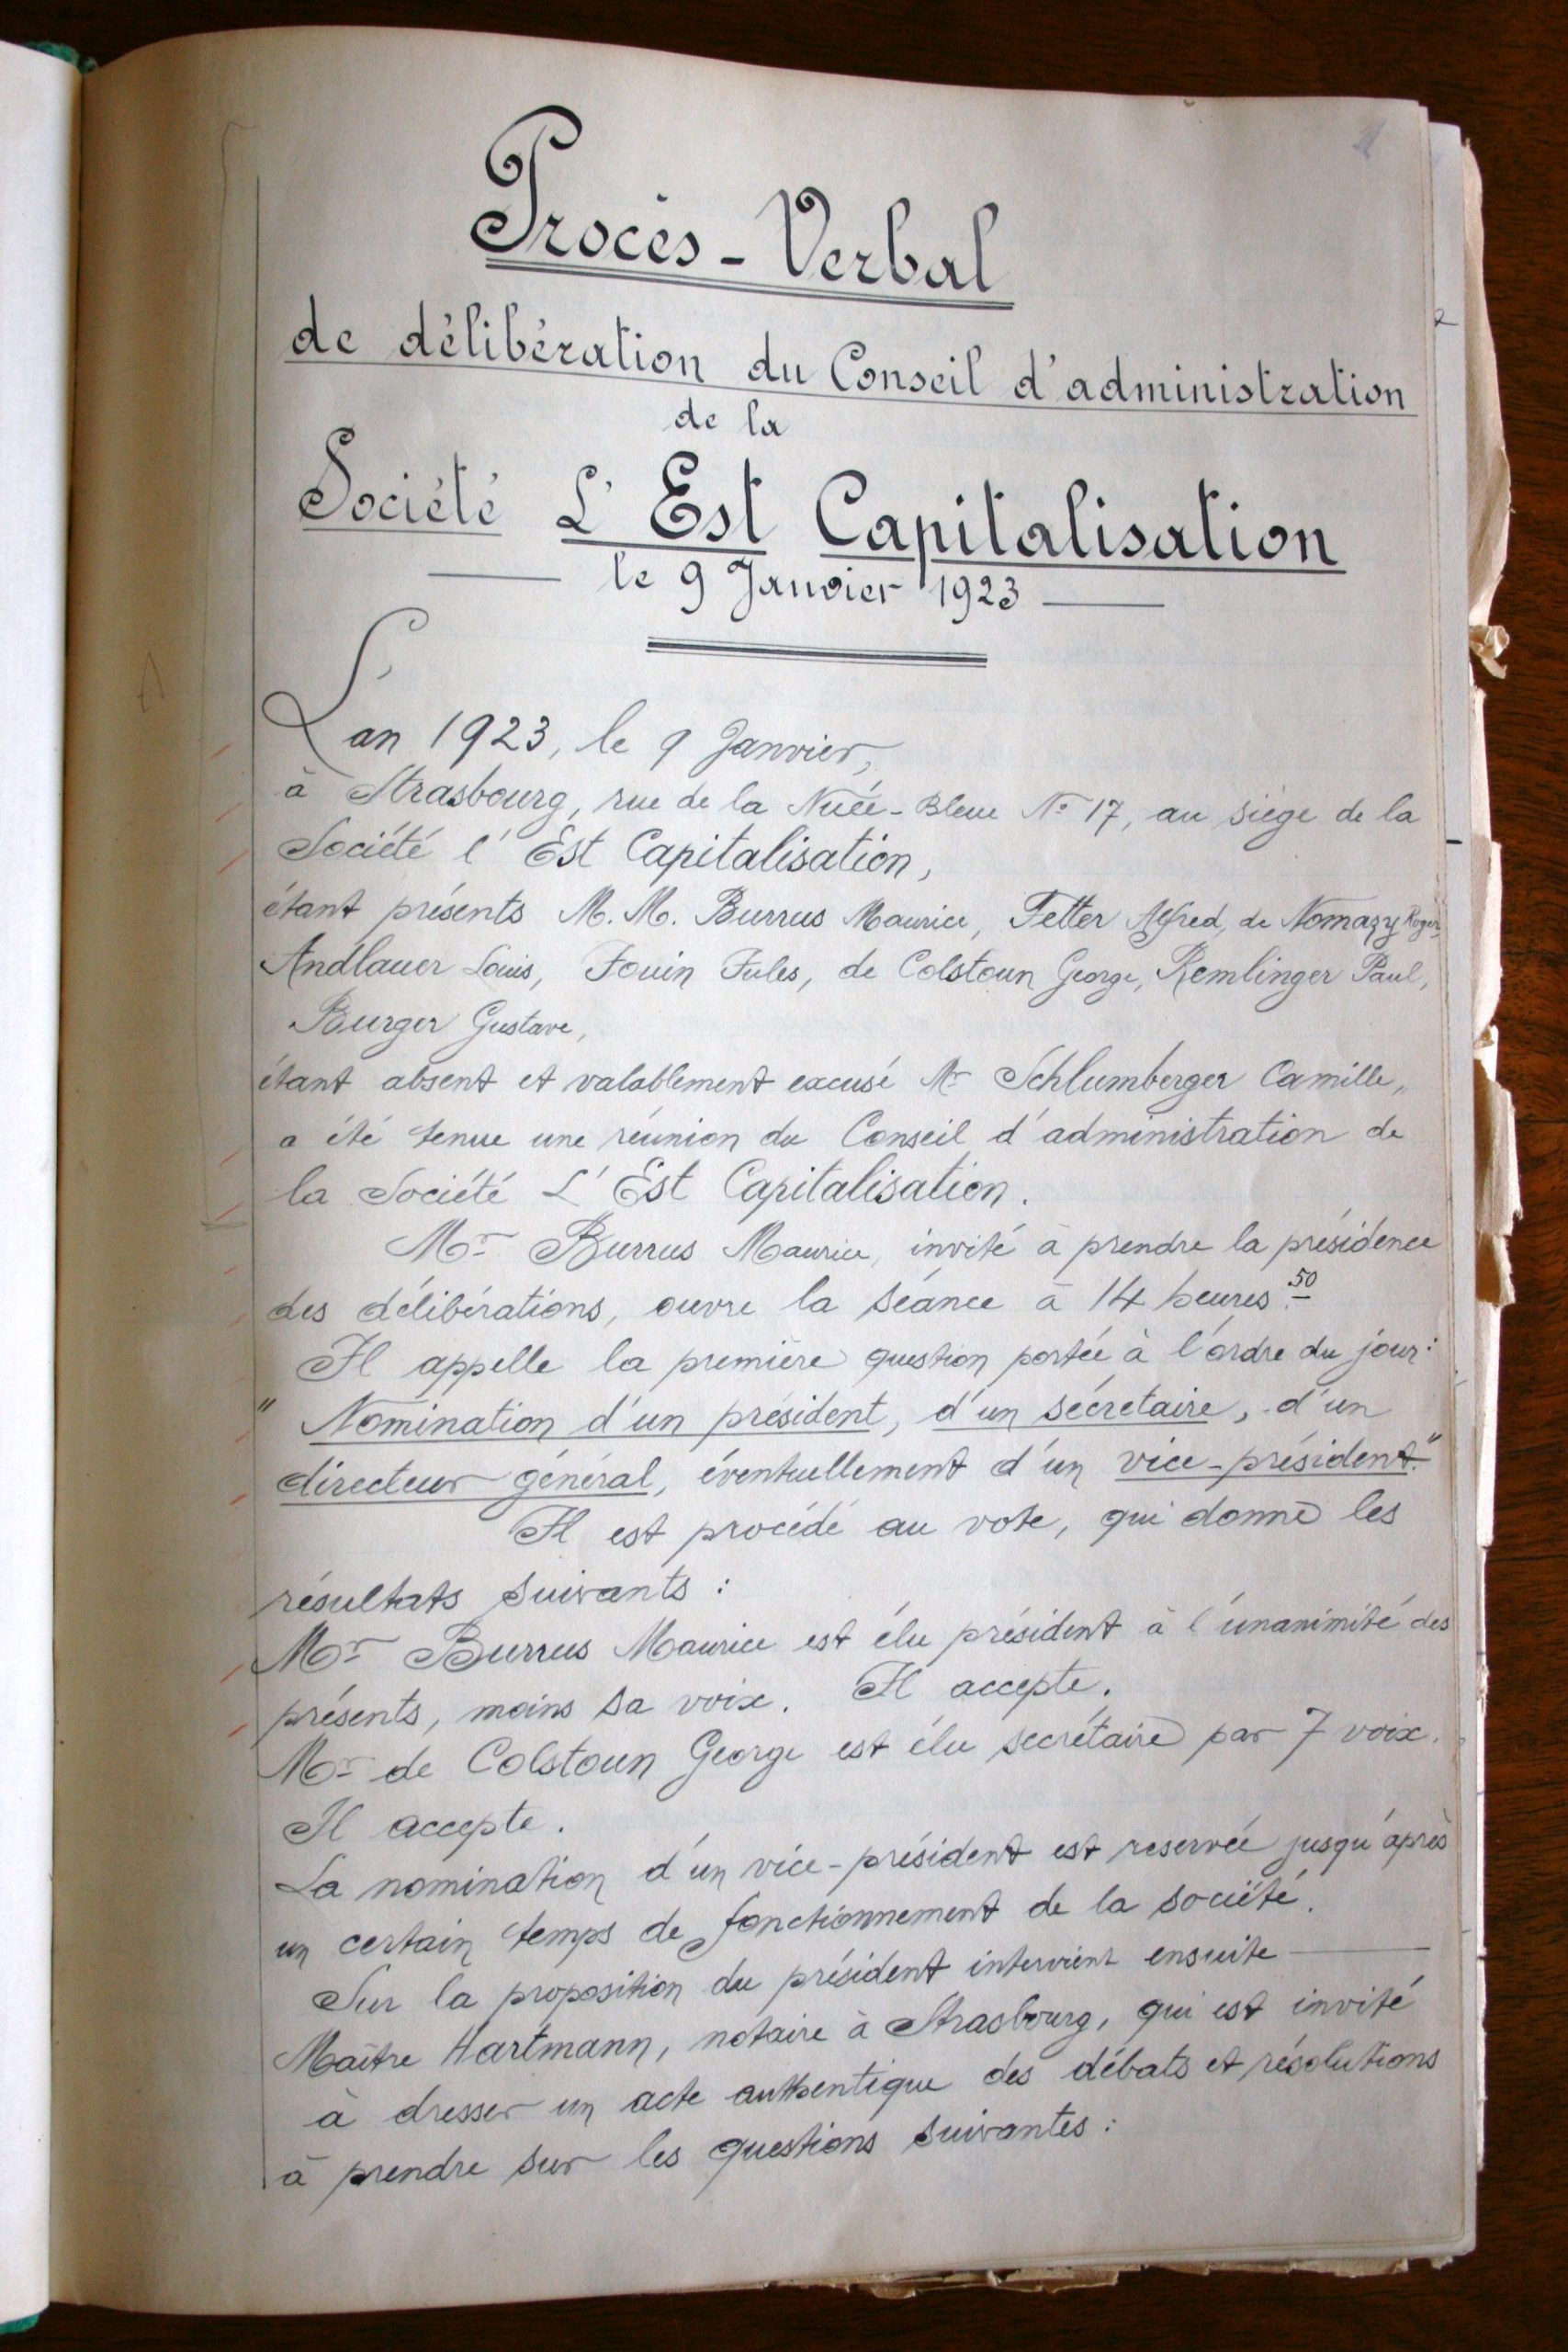 Procès-Verbal
de délibération du Conseil d'administration
de la
Société L'Est Capitalisation
le 9 Janvier 1923
L'an 1923, le 9 Janvier,
à Strasbourg, rue de la Nuée-Bleue No 17, au siège de la
Société l'Est Capitalisation,
étant présents M. M. Burrus Maurice, Fetter Alfred, de Nomazy Roger,
Andlauer Louis, Fouin Jules, de Colstoun George, Remlinger Paul,
Burger Gustave,
étant absent et valablement excusé Mr Schlumberger Camille,
a été tenue une réunion du Conseil d'administration de
la Société L'Est Capitalisation.
Mr Burrus Maurice, invité à prendre la présidence
des délibérations, ouvre la séance à 14 heures 50.
Il appelle la première question portée à l'ordre du jour:
"Nomination d'un président, d'un sécretaire, d'un
directeur général, éventuellement d'un vice-président."
Il est procédé au vote, qui donne les
résultats suivants :
Mr Burrus Maurice est élu président à l'unanimité des
présents, moins sa voix. Il accepte.
Mr de Colstoun George est élu secrétaire par 7 voix.
Il accepte.
La nomination d'un vice-président est reservée jusqu'après
un certain temps de fonctionnement de la société.
Sur la proposition du président intervient ensuite
Maître Hartmann, notaire à Strasbourg, qui est invité
à dresser un acte authentique des débats et résolutions
à prendre sur les questions suivantes :